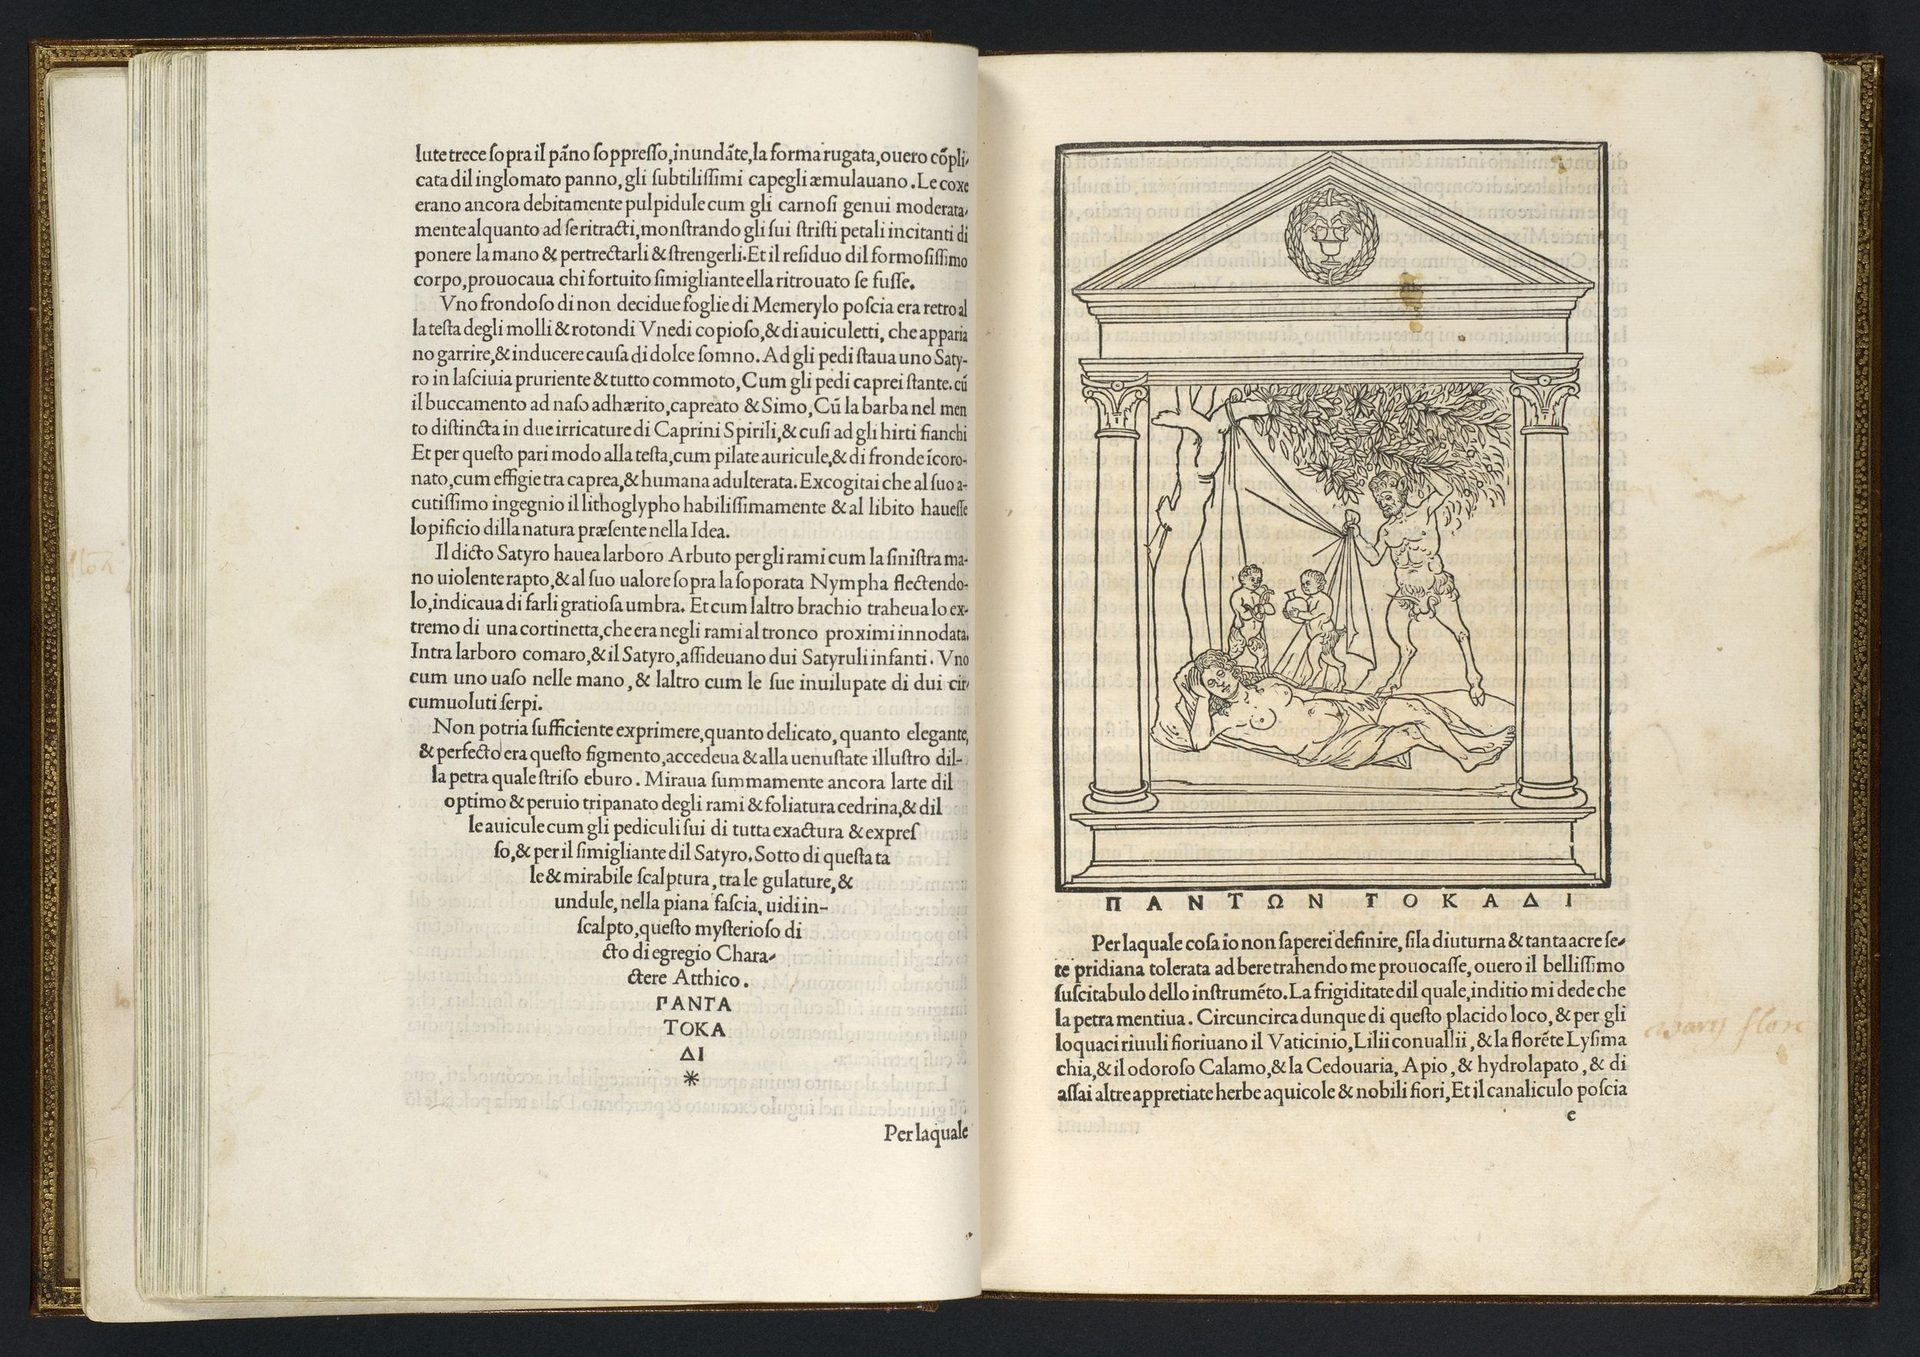 lute trece ſopra il pãno ſoppreſſo, inundãte, la forma rugata, ouero cõpli-
cata dil inglomato panno, gli ſubtiliſſimi capegli æmulauano. Le coxe
erano ancora debitamente pulpidule cum gli carnoſi genui moderata-
mente alquanto ad ſe ritracti, monſtrando gli ſui ſtriſti petali incitanti di
ponere la mano & pertrectarli & ſtrengerli. Et il reſiduo dil formoſiſſimo
corpo, prouocaua chi fortuito ſimigliante ella ritrouato ſe fuſſe.
Vno frondoſo di non decidue foglie di Memerylo poſcia era retro al
la teſta degli molli & rotondi Vnedi copioſo, & di auiculetti, che apparia
no garrire, & inducere cauſa di dolce ſomno. Ad gli pedi ſtaua uno Saty-
ro in laſciuia pruriente & tutto commoto, Cum gli pedi caprei ſtante. cũ
il buccamento ad naſo adhærito, capreato & Simo, Cũ la barba nel men
to diſtincta in due irricature di Caprini Spirili, & cuſi ad gli hirti fianchi
Et per queſto pari modo alla teſta, cum pilate auricule, & di fronde ĩcoro-
nato, cum effigie tra caprea, & humana adulterata. Excogitai che al ſuo a-
cutiſſimo ingegnio il lithoglypho habiliſſimamente & al libito haueſſe
lopificio dilla natura præſente nella Idea.
Il dicto Satyro hauea larboro Arbuto per gli rami cum la ſiniſtra ma-
no uiolente rapto, & al ſuo ualore ſopra la ſoporata Nympha flectendo-
lo, indicaua di farli gratioſa umbra. Et cum laltro brachio traheua lo ex-
tremo di una cortinetta, che era negli rami al tronco proximi innodata.
Intra larboro comaro, & il Satyro, aſſideuano dui Satyruli infanti. Vno
cum uno uaſo nelle mano, & laltro cum le ſue inuilupate di dui cir-
cumuoluti ſerpi.
Non potria ſufficiente exprimere, quanto delicato, quanto elegante,
& perfecto era queſto figmento, accedeua & alla uenuſtate illuſtro dil-
la petra quale ſtriſo eburo. Miraua ſummamente ancora larte dil
optimo & peruio tripanato degli rami & foliatura cedrina, & dil
le auicule cum gli pediculi ſui di tutta exactura & expreſ
ſo, & per il ſimigliante dil Satyro. Sotto di queſta ta
le & mirabile ſcalptura, tra le gulature, &
undule, nella piana faſcia, uidi in-
ſcalpto, queſto myſterioſo di
cto di egregio Chara-
ctere Atthico.
ΠΑΝΤΑ
ΤΟΚΑ
ΔΙ
*
Per laquale
ΠΑΝΤΩΝ ΤΟΚΑΔΙ
Per laquale coſa io non ſaperei definire, ſi la diuturna & tanta acre ſe-
te pridiana tolerata ad bere trahendo me prouocaſſe, ouero il belliſſimo
ſuſcitabulo dello inſtrumẽto. La frigiditate dil quale, inditio mi dede che
la petra mentiua. Circuncirca dunque di queſto placido loco, & per gli
loquaci riuuli fioriuano il Vaticinio, Lilii conuallii, & la florẽte Lyſima
chia, & il odoroſo Calamo, & la Cedouaria, Apio, & hydrolapato, & di
aſſai altre appretiate herbe aquicole & nobili fiori, Et il canaliculo poſcia
e